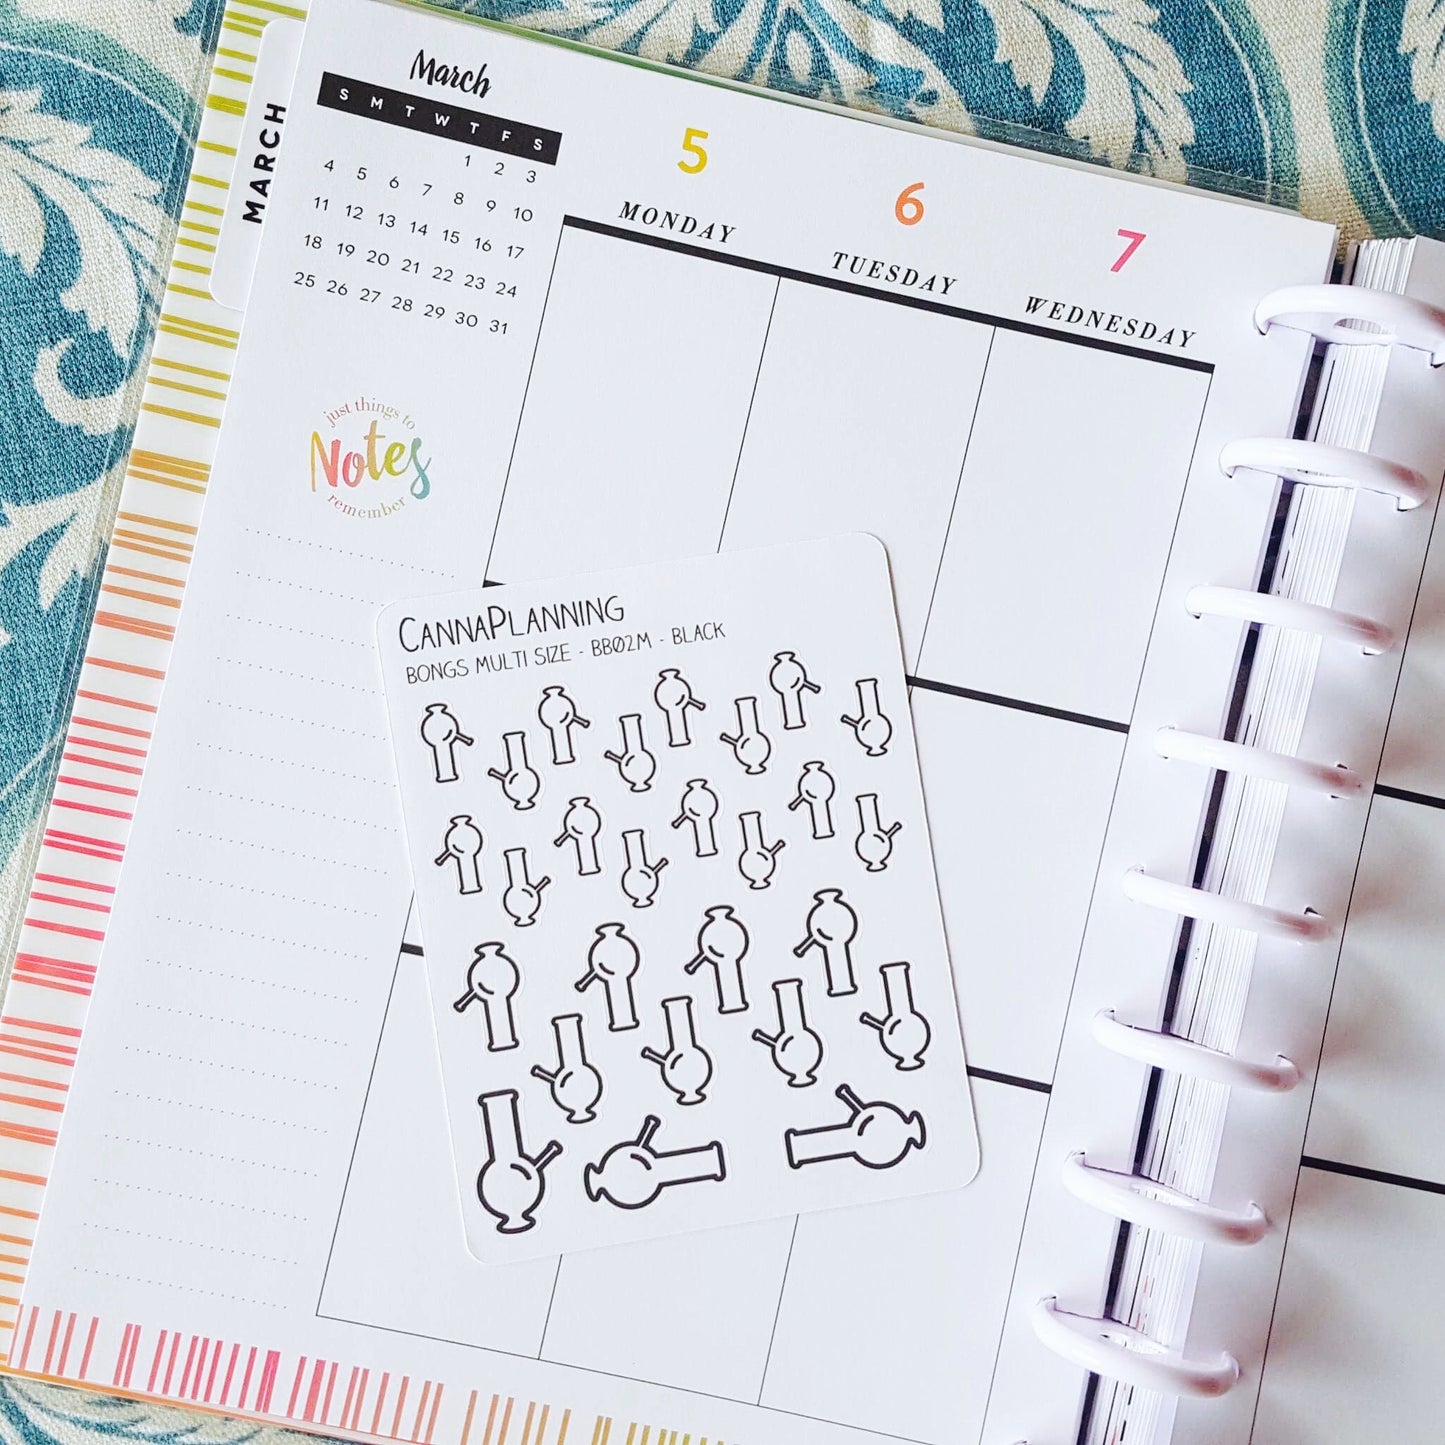 MARCH
March
S M T W T F S
1 2 3
4 5 6 7 8 9 10
11 12 13 14 15 16 17
18 19 20 21 22 23 24
25 26 27 28 29 30 31
5
MONDAY
6
TUESDAY
7
WEDNESDAY
just things to
NOTES
remember
CANNAPLANNING
BONGS MULTI SIZE - BB02M - BLACK